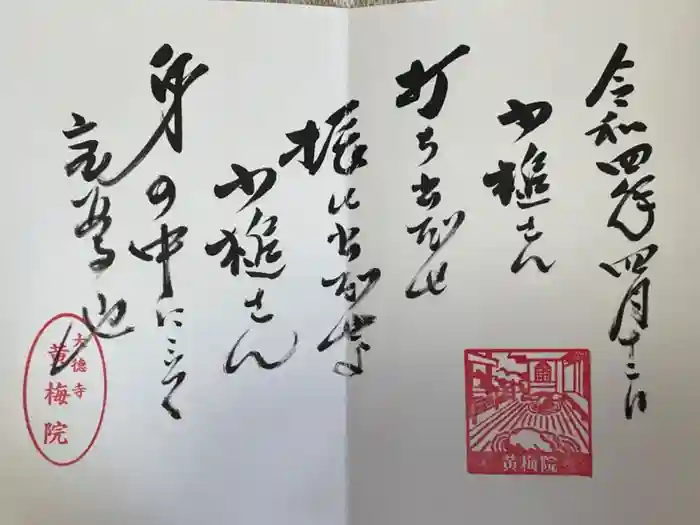 令和四年四月十二日
小槌さん
打ち出だせ
振ひ出だせよ
小槌さん
身の中にこそ
宝
也
大徳寺
黄梅院
黄梅院